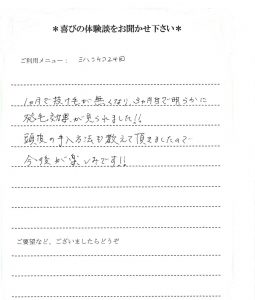 ＊喜びの体験談をお聞かせ下さい＊
ご利用メニュー：ミハラキワ24回
1ヶ月で抜け毛が無くなり、3ヶ月目で明らかに
発毛効果が見られました!!
頭皮の手入方法も教えて頂きましたので
今後が楽しみです!!
ご要望など、ございましたらどうぞ